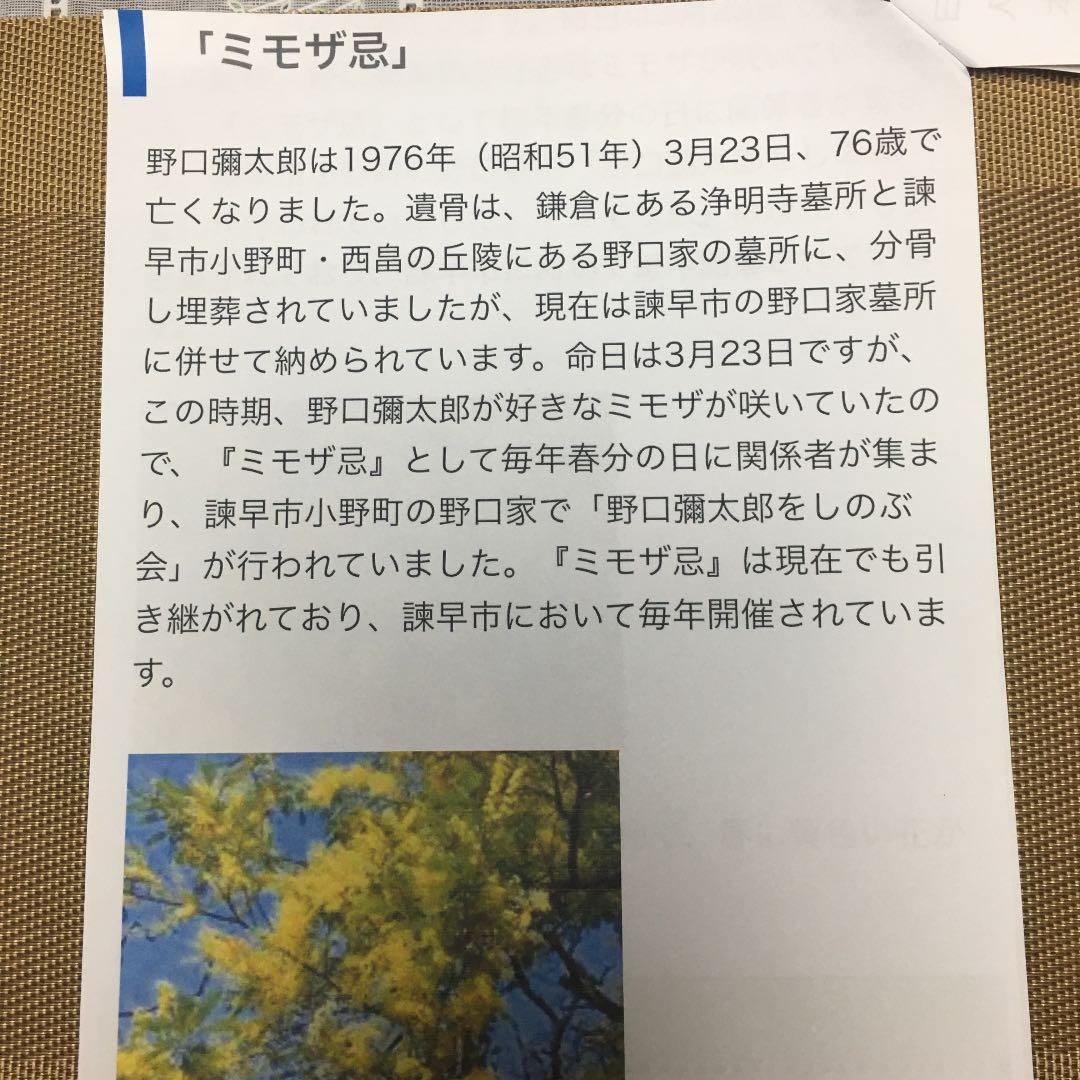 「ミモザ忌」
野口彌太郎は1976年（昭和51年）3月23日、76歳で
亡くなりました。遺骨は、鎌倉にある浄明寺墓所と諫
早市小野町・西畠の丘陵にある野口家の墓所に、分骨
し埋葬されていましたが、現在は諫早市の野口家墓所
に併せて納められています。命日は3月23日ですが、
この時期、野口彌太郎が好きなミモザが咲いていたの
で、『ミモザ忌』として毎年春分の日に関係者が集ま
り、諫早市小野町の野口家で「野口彌太郎をしのぶ
会」が行われていました。『ミモザ忌』は現在でも引
き継がれており、諫早市において毎年開催されていま
す。